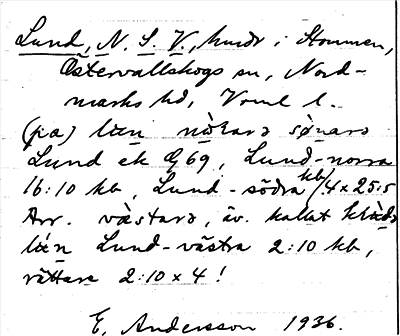 Lund, N. S. V., hmdr i Stommen,
Östervallskogs sn, Nord-
marks hd, Vrml l.
(pa) lün nòrarə sø̀narə
Lund ek G69, Lund-norra
16:10 kb, Lund-södra kb/4x25:5
Arr. västarə, äv. kallat
lün Lund-västra 2:10 kb,
rättare 2:10 x 4!
E. Andersson 1936.